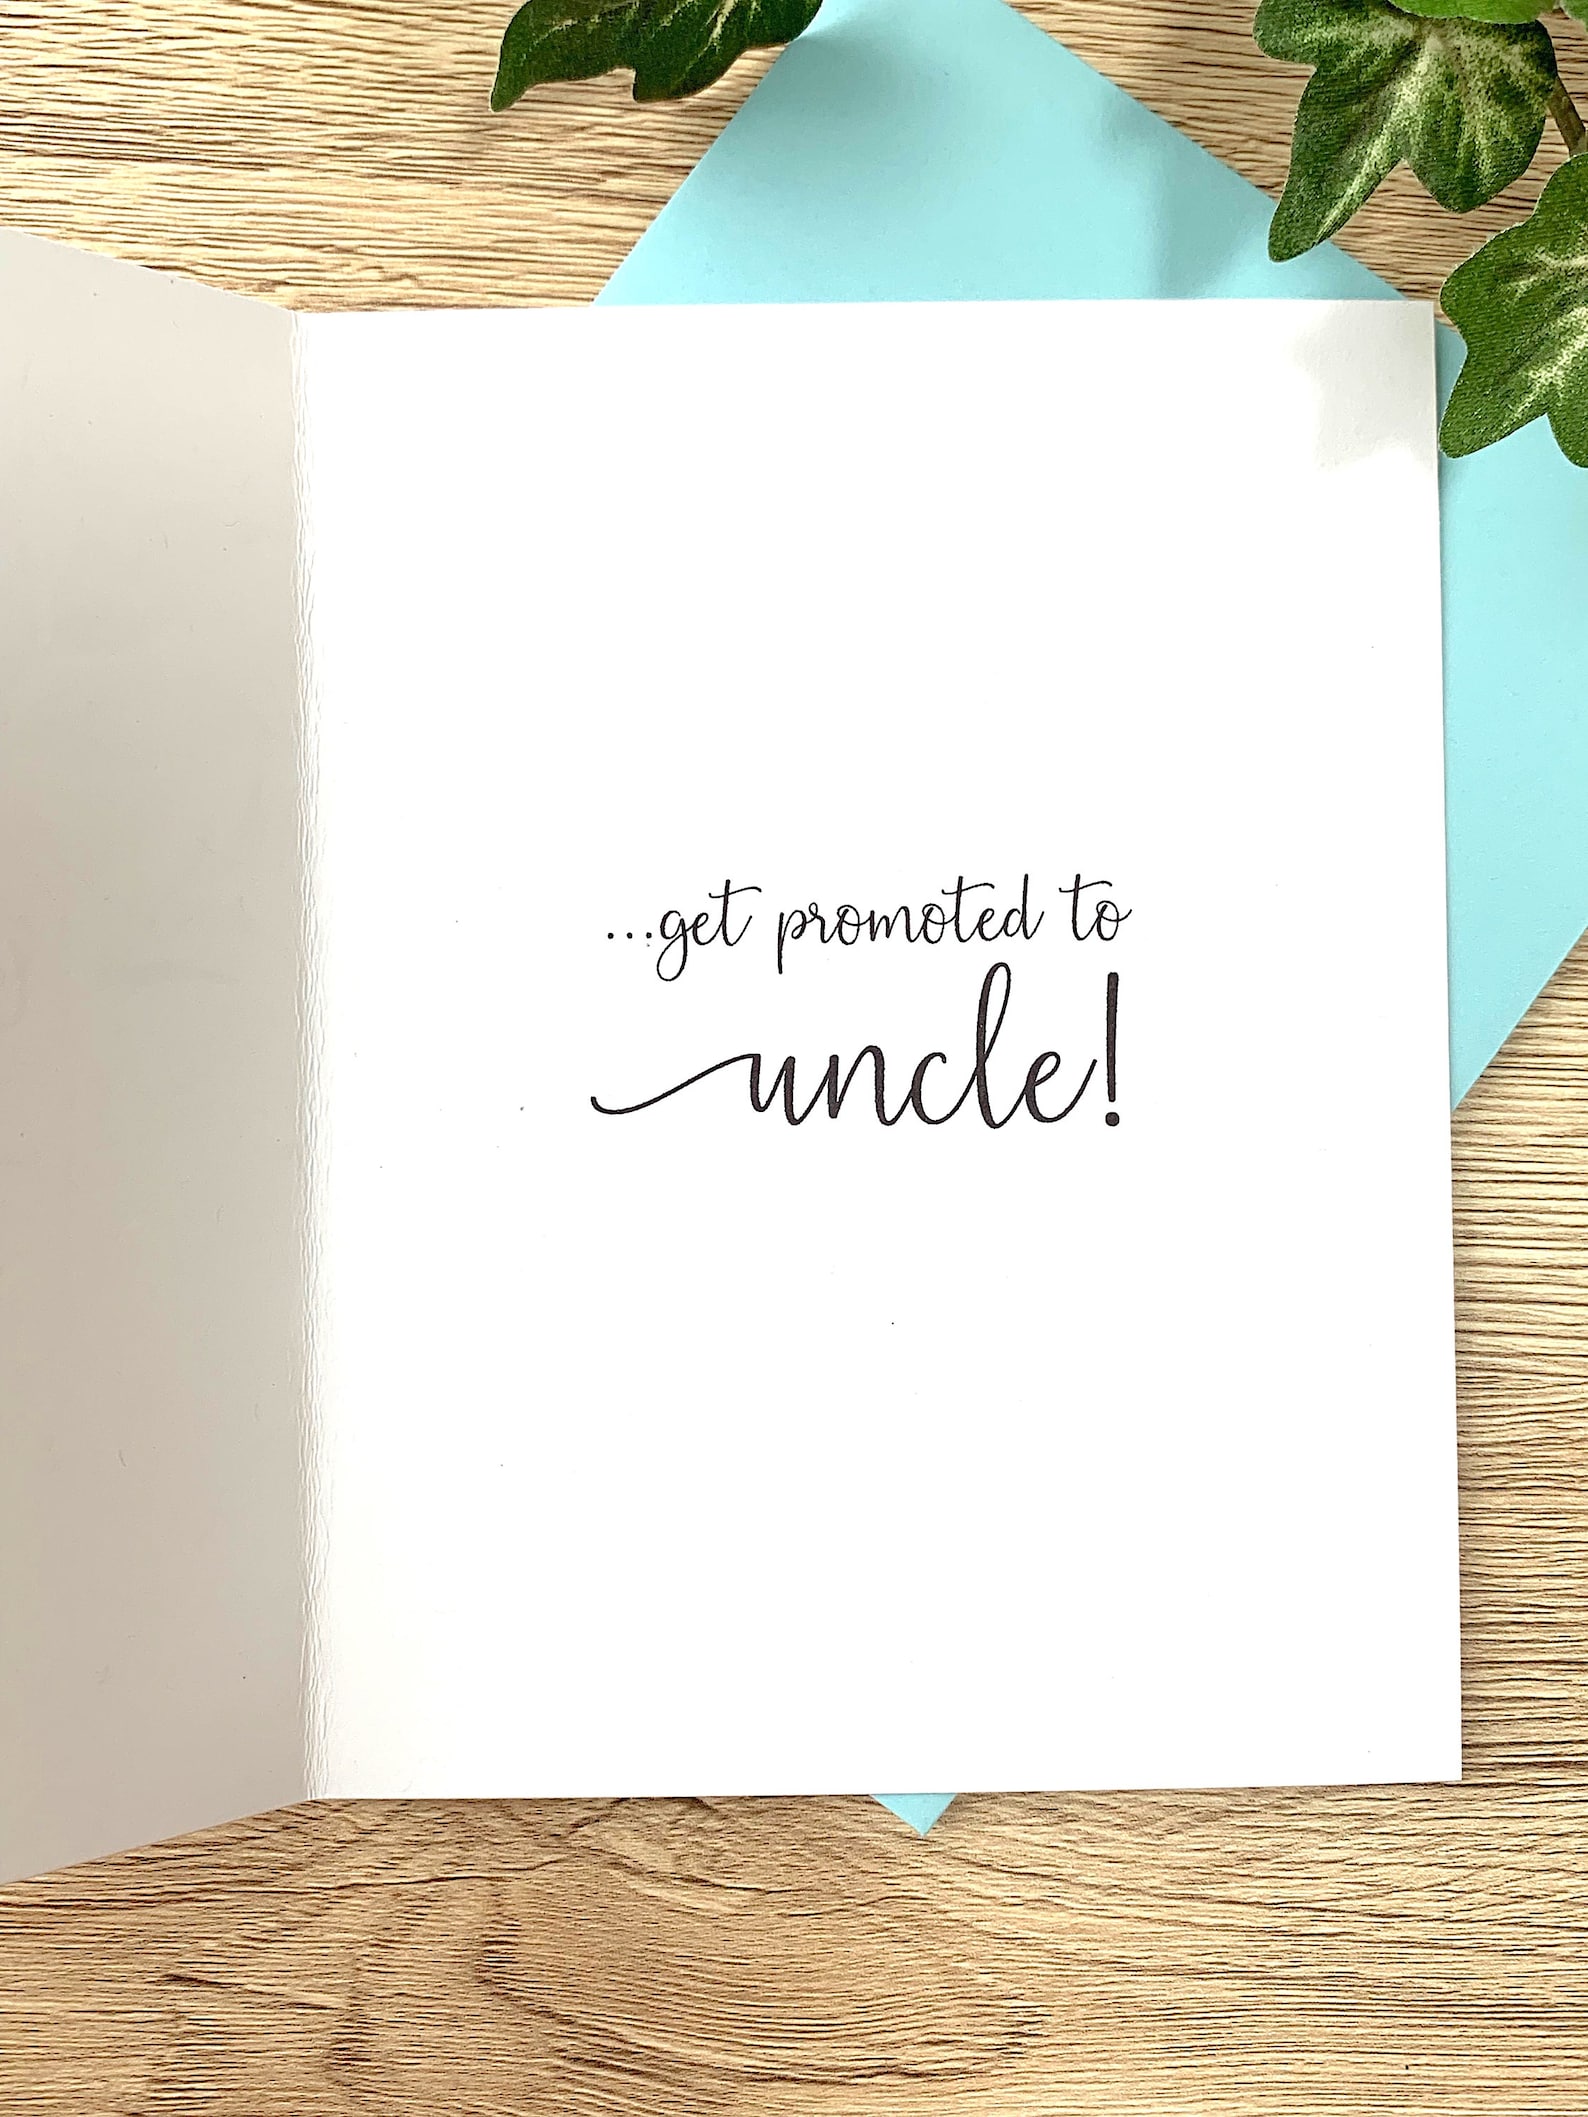 ...get promoted to
uncle!